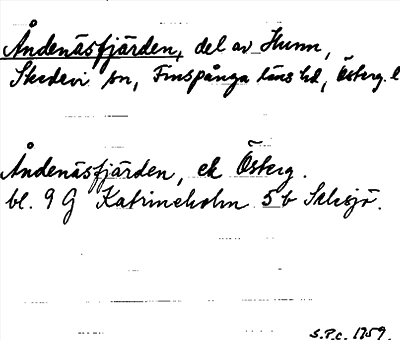 Åndenäsfjärden, del av Hunn,
Skedevi sn, Finspånga läns hd, Österg. l
Åndenäsfjärden, ek Österg.
bl. 9 G Katrineholm 5 b
S.P.c. 1959.